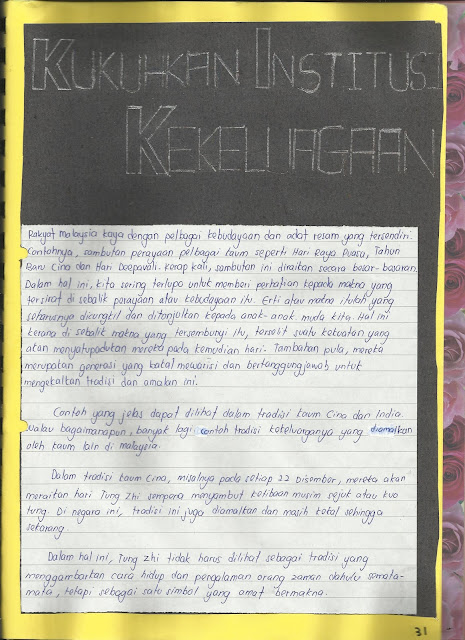 KUKUHKAN INSTITUSI
KEKELUAGAAN
Rakyat malaysia kaya dengan pelbagai kebudayaan dan adat resam yang tersendiri.
Contohnya, sambutan perayaan pelbagai kaum seperti Hari Raya Puasa, Tahun
Baru Cina dan Hari Deepavali. Kerap kali, sambutan ini diraikan secara besar-besaran.
Dalam hal ini, kita sering terlupa untuk memberi perhatian kepada makna yang
tersirat di sebalik perayaan atau kebudayaan itu. Erti atau makna itulah yang
seharusnya dicungkil dan ditonjolkan kepada anak-anak muda kita. Hal ini
kerana di sebalik makna yang tersembunyi itu, terselit suatu kekuatan yang
akan menyatupadukan mereka pada kemudian hari. Tambahan pula, mereka
merupakan generasi yang bakal mewarisi dan bertanggungjawab untuk
mengekalkan tradisi dan amalan ini.
Contoh yang jelas dapat dilihat dalam tradisi kaum Cina dan India.
Walau bagaimanapun, banyak lagi contoh tradisi kekeluarganya yang diamalkan
oleh kaum lain di malaysia.
Dalam tradisi kaum Cina, misalnya pada setiap 22 Disember, mereka akan
meraikan hari Tung Zhi sempena menyambut ketibaan musim sejuk atau kuo
tung. Di negara ini, tradisi ini juga diamalkan dan masih kekal sehingga
sekarang.
Dalam hal ini, Tung Zhi tidak harus dilihat sebagai tradisi yang
menggambarkan cara hidup dan pengalaman orang zaman dahulu semata-
mata, tetapi sebagai satu simbol yang amat bermakna.
31